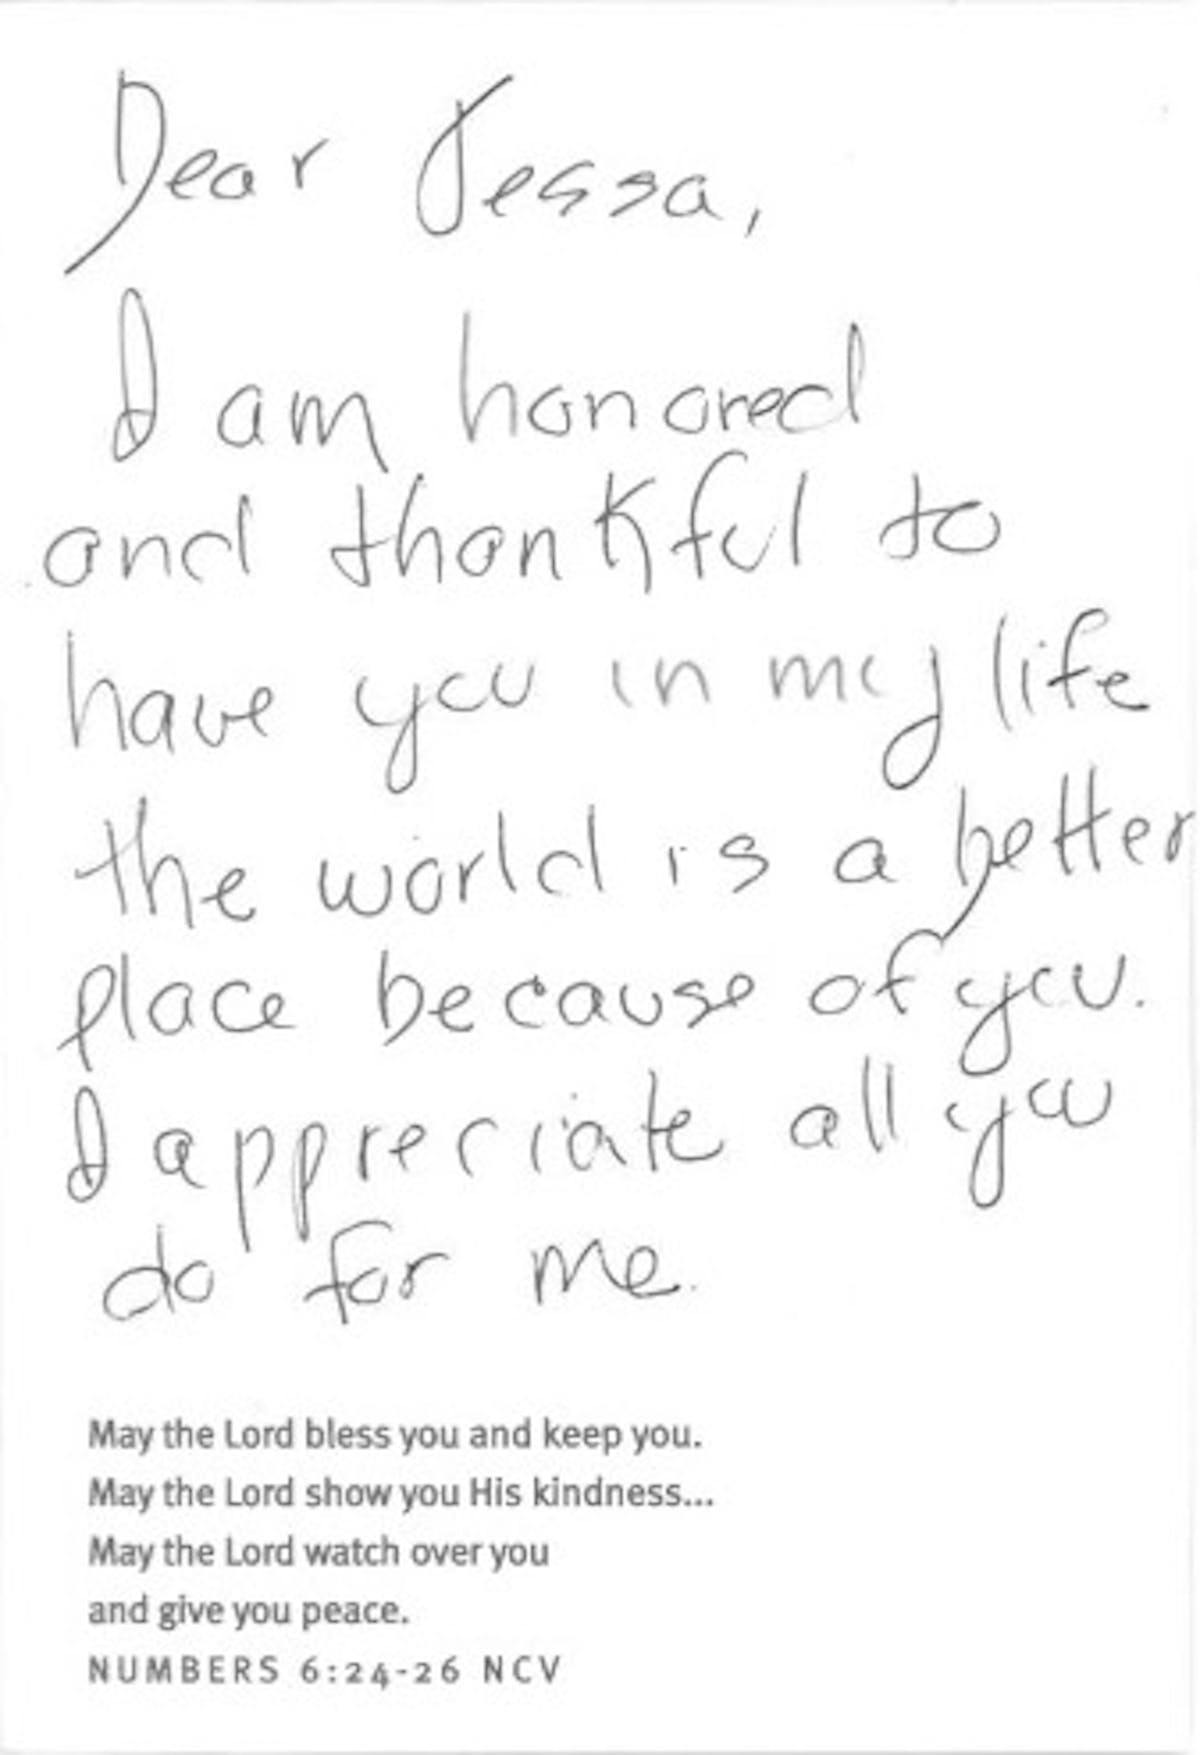 Dear Jessa,
I am honored
and thankful to
have you in my life
the world is a better
place because of you.
I appreciate all you
do for me.
May the Lord bless you and keep you.
May the Lord show you His kindness...
May the Lord watch over you
and give you peace.
NUMBERS 6:24-26 NCV